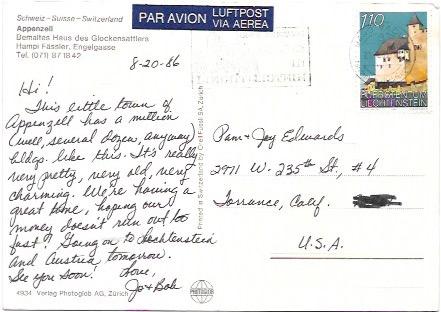 Schweiz - Suisse - Switzerland
Appenzell
Bemaltes Haus des Glockensattlers
Hampi Fässler, Engelgasse
Tel. (071) 87 18 42
PAR AVION LUFTPOST
VIA AEREA
110
FÜRSTENTUM
LIECHTENSTEIN
8-20-86
Hi!
This little town of
Appenzell has a million
(well, several dozen, anyway)
bldgs. like this. It's really
very pretty, very old, very
charming. We're having a
great time, hoping our
money doesn't run out too
fast! Going on to Liechtenstein
and Austria tomorrow.
See you soon! Love,
Jo & Bob
4934 Verlag Photoglob AG, Zürich
Printed in Switzerland by Orell Füssli SA, Zürich
PHOTOGLOB
Pam & Joy Edwards
2911 W. 235th St., #4
Torrance, Calif.
U.S.A.